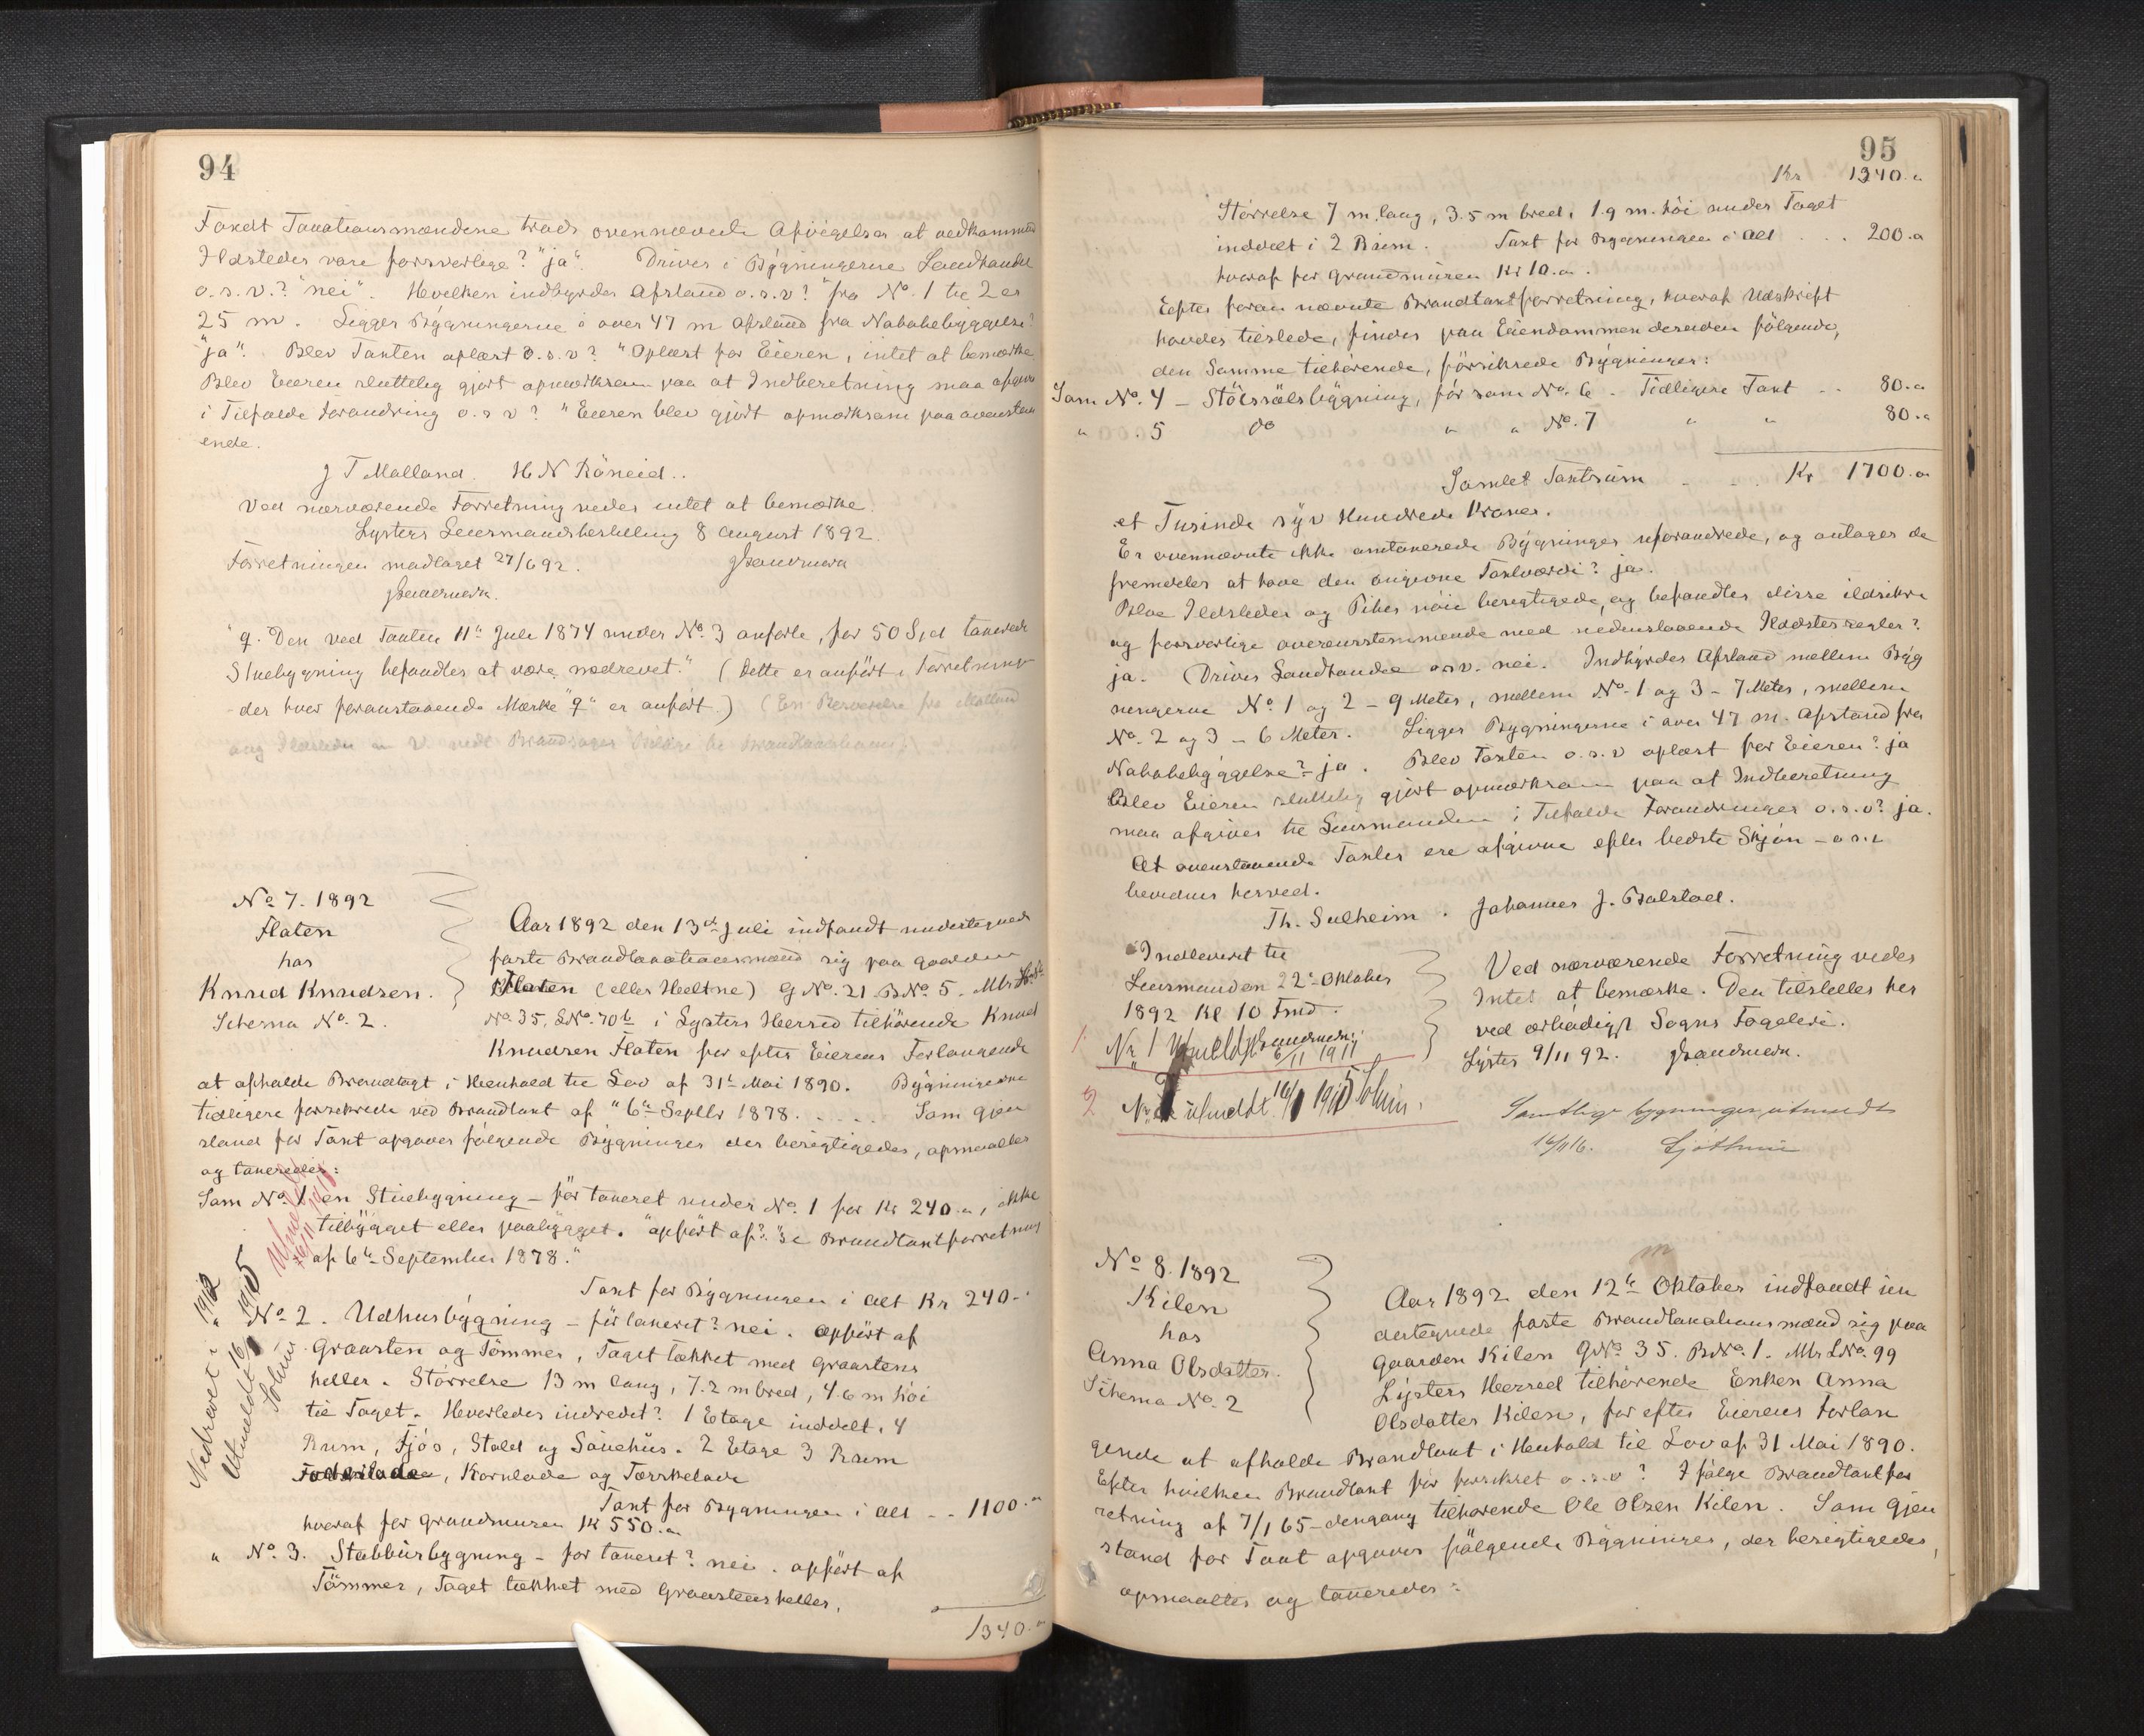 94
Fandt Taxationsmændene trods ovennævnte Afvigelser at vedkommende
Ildsteder vare forsvarlige? "ja". Drives i Bygningerne Landhandel
o.s.v.? "nei". Hvilken indbyrdes Afstand o.s.v? "fra No. 1 til 2 er
25 m. Ligger Bygningerne i over 47 m Afstand fra Nabobebyggelse?
"ja". Blev Taxten oplæst o.s.v? "Oplæst for Eieren, intet at bemærke
Blev Eieren sluttelig gjort opmærksom paa at Indberetning maa afgives
i Tilfælde Forandring o.s.v? "Eieren blev gjort opmærksom paa ovenstaa
ende.
J T Malland. H N Röneid..
Ved nærværende Forretning vedes intet at bemærke.
Lysters Lensmandsbestilling 8 August 1892.
Forretningen modtaget 27/6 92.
"q. Den ved Taxten 11te Juli 1874 under No. 3 anførte, for 50 Spd taxerede
Stuebygning befandtes at være nedrevet." (Dette er anført i Forretningen
der hvor foranstaaende Mærke "q" er anført.)
No 7. 1892
Flaten
hos
Knud Knudsen.
Schema No. 2.
Aar 1892 den 13de Juli indfandt undertegnede
faste Brandtaxationsmænd sig paa Gaarden
Flaten (eller Heltne) G No. 21 B No. 5. Mtr
No. 35, L No. 70b i Lysters Herred tilhørende Knud
Knudsen Flaten for efter Eierens Forlangende
at afholde Brandtaxt i Henhold til Lov af 31te Mai 1890. Bygningerne
tidligere forsekrede ved Brandtaxt af "6te Septbr 1878. . . . . Som gjen
stand for Taxt opgaves følgende Bygninger der besigtigedes, opmaaltes
og taxeredes:
Som No. 1 en Stuebygning – før taxeret under No. 1 for Kr 240.", ikke
tilbygget eller paabygget. "opført af?" "Se Brandtaxtforretning
af 6te September 1878."
Taxt for Bygningen i alt Kr 240-"
" No. 2. Udhusbygning – før taxeret? nei. opført af
Graasten og Tømmer, Taget tækket med Graastens
heller. Størrelse 13 m lang, 7.2 m bred, 4.6 m høi
til Taget. Hvorledes indredet? 1 Etage inddelt i 4
Rum, Fjøs, Stald og Sauehus. 2 Etage 3 Rum
Foderlade, Kornlade og Tørrkelade
Taxt for Bygningen i alt .. 1100."
hvoraf for Grundmuren Kr 550."
" No. 3. Stabbursbygning – før taxeret? nei. opført af
Tømmer, Taget tækket med Graastensheller.
1340."
Utmeldt
16/11 1916
Nedrevet i 1912
Utmeldt 16/ 1915
Solum
95
Kr 1340."
Størrelse 7 m lang, 3.5 m bred, 1.9 m. høi under Taget
inddelt i 2 Rum. Taxt for Bygningen i alt . . . 200."
hvoraf for Grundmuren Kr 10.".
Efter foran nævnte Brandtaxtforretning, hvoraf Udskrift
havdes tilstede, findes paa Eiendommen desuden følgende,
den Samme tilhørende, försikrede Bygninger:
Som No. 4 – Stölssælsbygning, før som No. 6 . Tidligere Taxt .. 80."
" " 5 do " " No. 7 " " 80."
Samlet Taxtsum . . . Kr 1700."
et Tusinde syv Hundrede Kroner.
Er ovennævnte ikke omtaxerede Bygninger uforandrede, og antages de
fremdeles at have den angivne Taxtværdi? ja.
Blev Ildsteder og Piber nøie besigtigede, og befandtes disse ildsikre
og forsvarlige overensstemmende med nedenstaaende Ildstedsregler?
ja. (Drives Landhandel osv. nei. Indbyrdes Afstand mellem Byg
ningerne No. 1 og 2 – 9 Meter, mellem No. 1 og 3 – 7 Meter, mellem
No. 2 og 3 – 6 Meter. Ligger Bygningerne i over 47 m. Afstand fra
Nabobebyggelse? – ja. Blev Taxten o.s.v oplæst for Eieren? ja
Blev Eieren sluttelig gjort opmærksom paa at Indberetning
maa afgives til Lensmanden i Tilfælde Forandringer o.s.v? ja.
At ovenstaaende Taxter ere afgivne efter bedste Skjøn – o.s.v
bevidnes herved.
Th. Sulheim. Johannes J. Bolstad.
Indleveret til
Lensmanden 22de Oktober
1892 Kl 10 Fmd.
Ved nærværende Forretning vedes
Intet at bemærke. Den tilstilles her
ved ærbødigst Sogns Fogderi.
Lyster 9/11 92.
1. Nr. 1 Utmeldt 6/11 1911
2 Nr. 2 utmeldt 16/ 1915 Solum.
Samtlige bygninger utmeldt
16/11 16.
No 8. 1892
Kilen
hos
Anna Olsdatter.
Schema No. 2
Aar 1892 den 12te Oktober indfandt un
dertegnede faste Brandtaxationsmænd sig paa
Gaarden Kilen G No. 35. B No. 1. Mtr L No. 99
Lysters Herred tilhørende Enken Anna
Olsdatter Kilen, for efter Eierens Forlan
gende at afholde Brandtaxt i Henhold til Lov af 31 Mai 1890.
Efter hvilken Brandtaxt før forsikret o.s.v? Ifølge Brandtaxtfor
retning af 7/1 65 – dengang tilhørende Ole Olsen Kilen. Som Gjen
stand for Taxt opgaves følgende Bygninger, der besigtigedes,
opmaaltes og taxeredes: